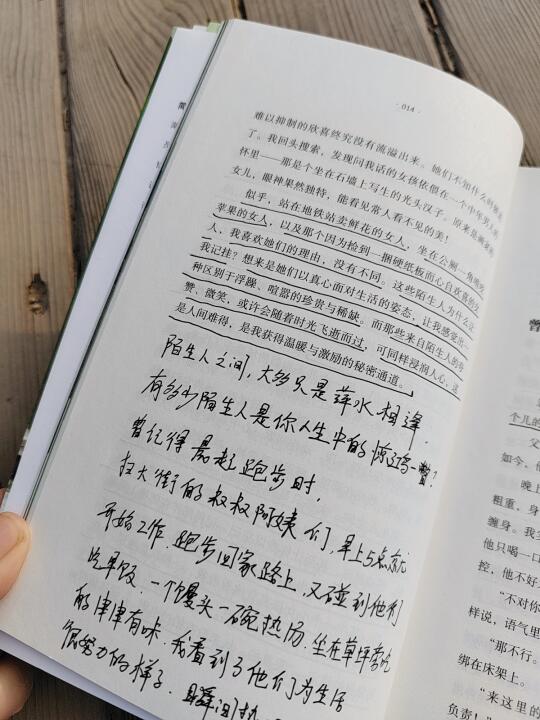 · 014 ·
难以抑制的欣喜终究没有流溢出来。她们不知什么时候走
了。我回头搜索，发现问我话的女孩依偎在一个中年男人的
怀里——那是个坐在石墙上写生的光头汉子。原来是画家的
女儿，眼神果然独特，能看见常人看不见的美！
似乎，站在地铁站卖鲜花的女人，坐在公厕一角啃吃
苹果的女人，以及那个因为捡到一捆硬纸板而心自欢喜的女
人，我喜欢她们的理由，没有不同。这些陌生人为什么让
我记挂？想来是她们以真心面对生活的姿态，让我感觉出一
种区别于浮躁、喧嚣的珍贵与稀缺。而那些来自陌生人的夸
赞、微笑，或许会随着时光飞逝而过，可同样浸润人心，这
是人间难得，是我获得温暖与激励的秘密通道。
陌生人之间，大多只是萍水相逢．
有多少陌生人是你人生中的惊鸿一瞥？
曾记得晨起跑步时，
扫大街的叔叔阿姨们，早上5点就
开始工作．跑步回家路上，又碰到他们
吃早饭．一个馒头一碗热汤．坐在草坪旁吃
的津津有味．我看到了他们为生活
很努力的样子．瞬间热
曾
个儿的
父
如今，他
晚上
粗重，身
缠身。我
他只喝一口
控，他不好
“不对你
样说，语气里
“那不行。
绑在床架上。
“来这里的
负责！